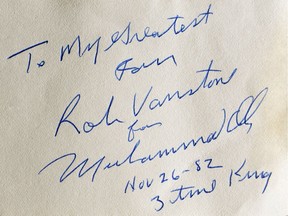 To My Greatest
Fan
Rob Vanstone
from
Muhammad Ali
Nov 26-82
3 time King